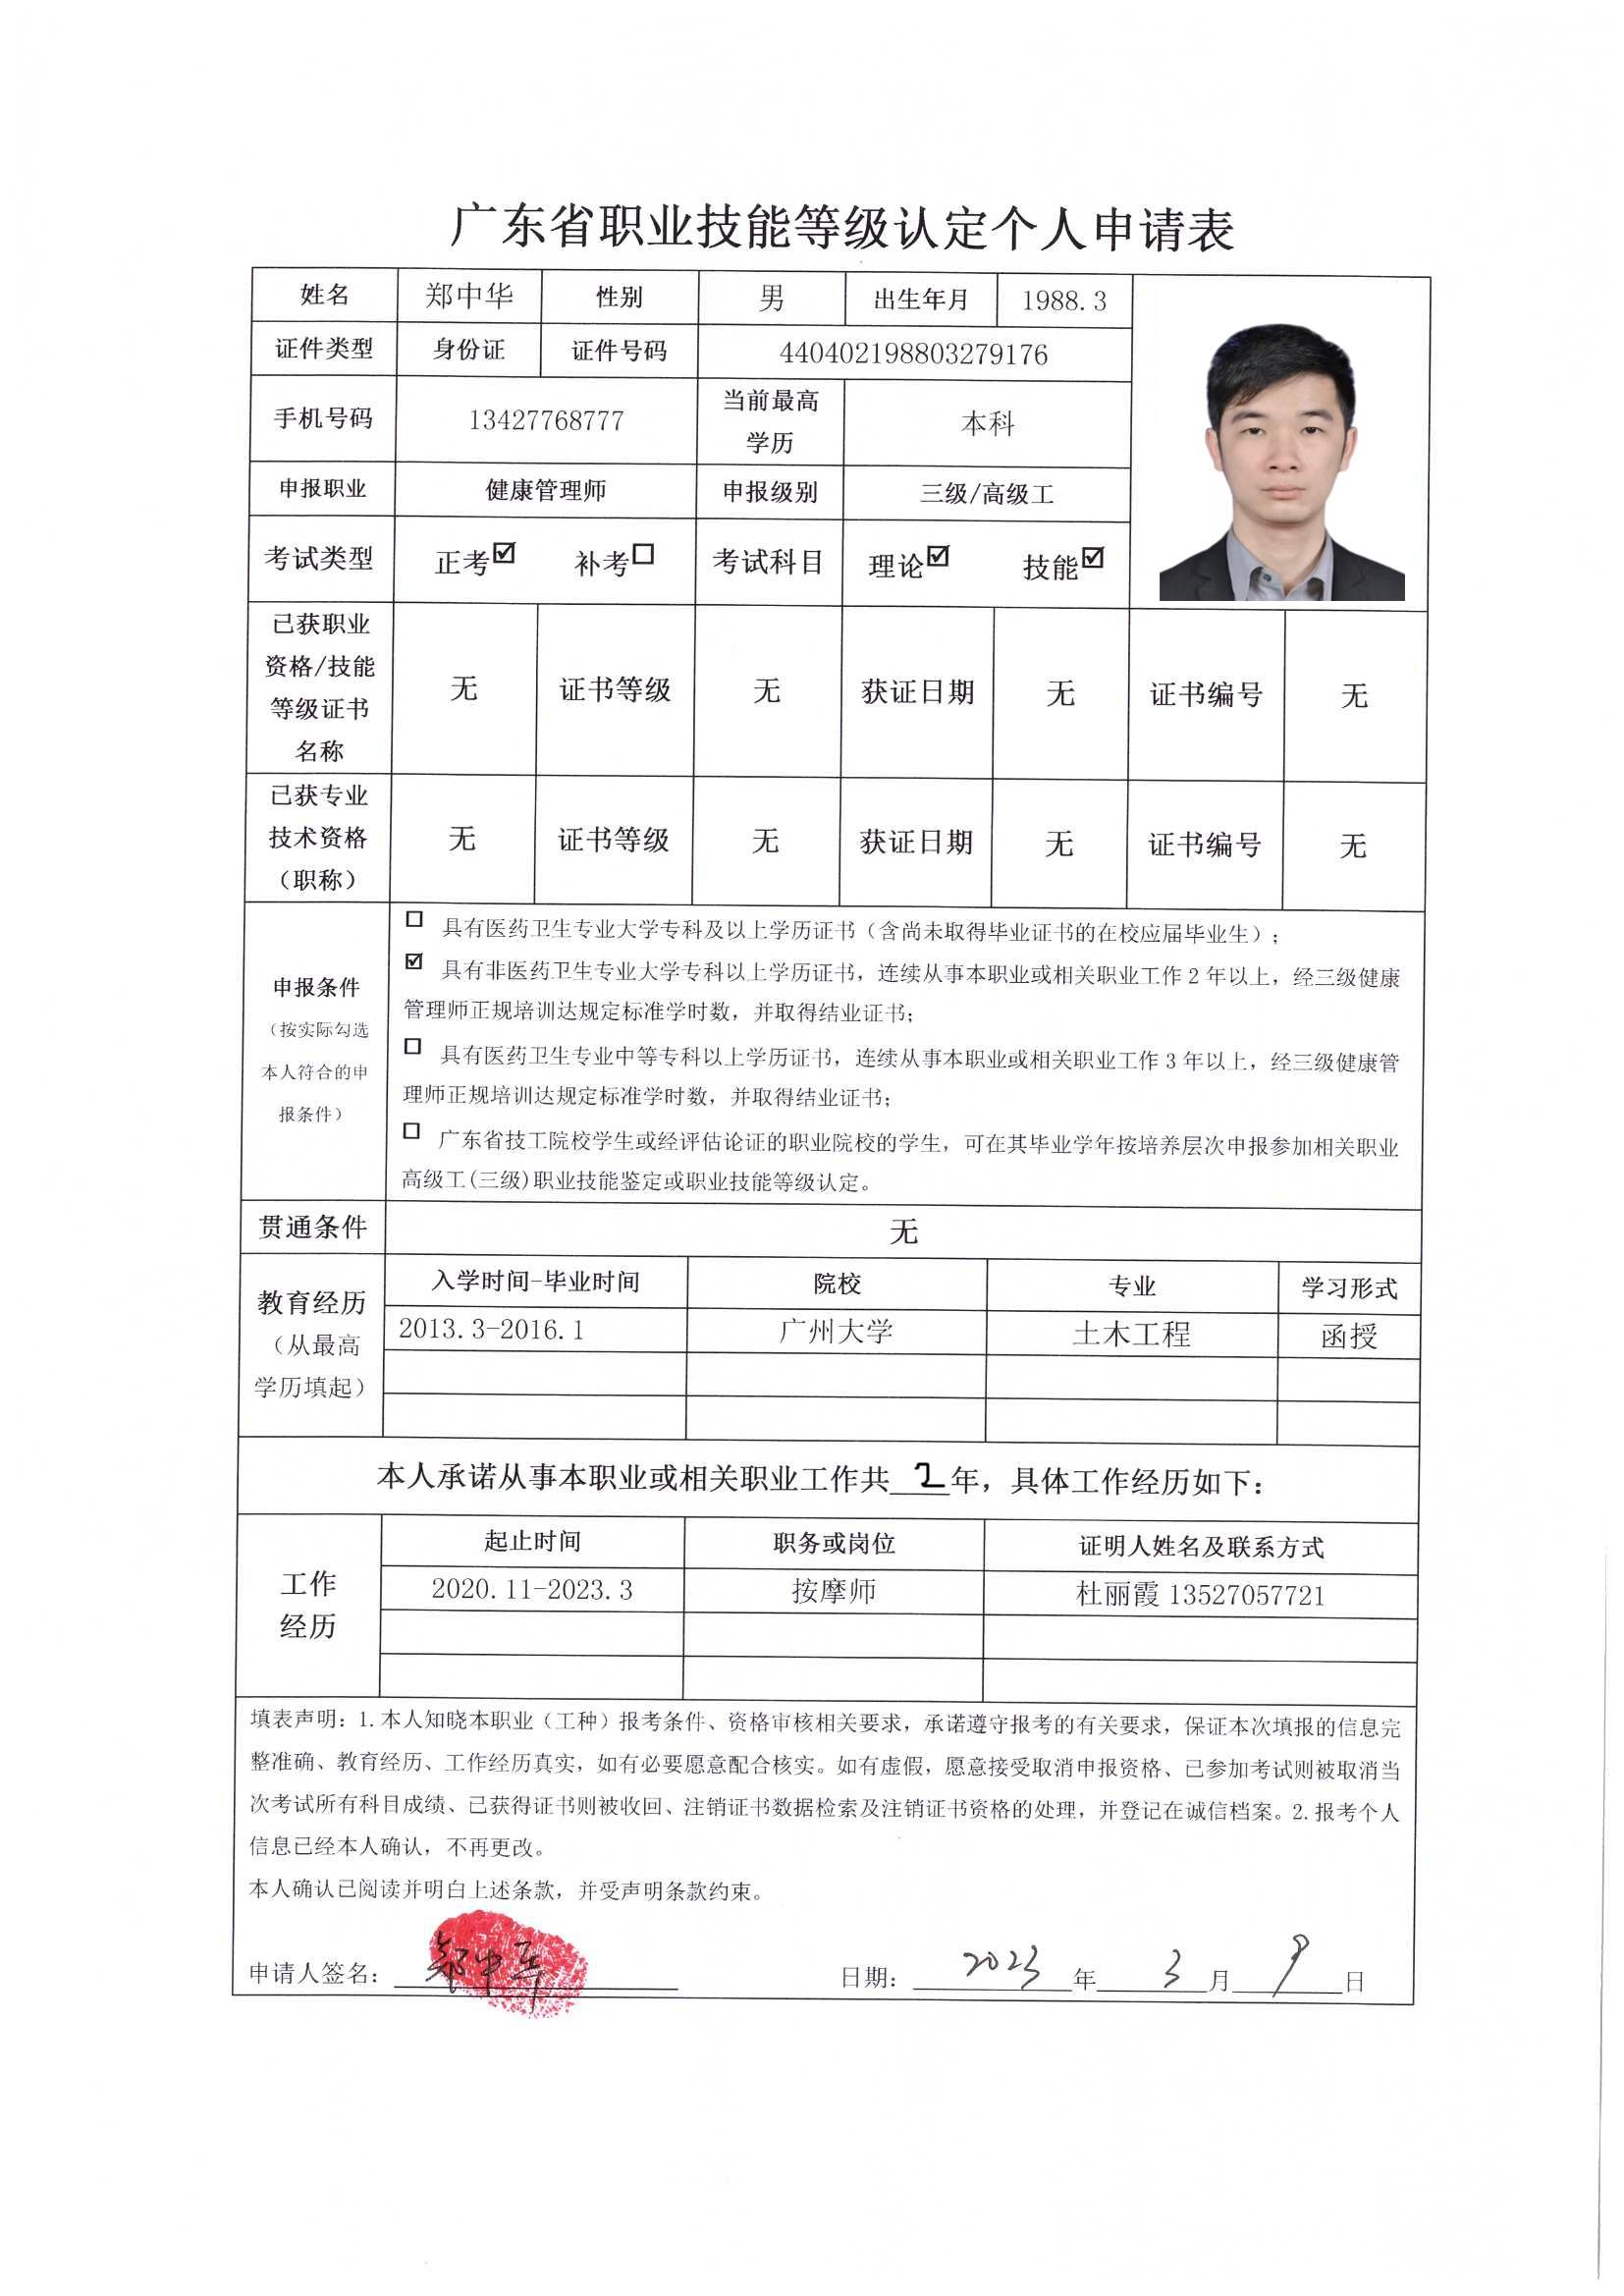 广东省职业技能等级认定个人申请表
姓名 郑中华 性别 男 出生年月 1988.3
证件类型 身份证 证件号码 440402198803279176
手机号码 13427768777 当前最高学历 本科
申报职业 健康管理师 申报级别 三级/高级工
考试类型 正考☑ 补考☐ 考试科目 理论☑ 技能☑
已获职业资格/技能等级证书名称 无 证书等级 无 获证日期 无 证书编号 无
已获专业技术资格（职称） 无 证书等级 无 获证日期 无 证书编号 无
申报条件
（按实际勾选
本人符合的申
报条件）
☐ 具有医药卫生专业大学专科及以上学历证书（含尚未取得毕业证书的在校应届毕业生）；
☑ 具有非医药卫生专业大学专科以上学历证书，连续从事本职业或相关职业工作 2 年以上，经三级健康
管理师正规培训达规定标准学时数，并取得结业证书；
☐ 具有医药卫生专业中等专科以上学历证书，连续从事本职业或相关职业工作 3 年以上，经三级健康管
理师正规培训达规定标准学时数，并取得结业证书；
☐ 广东省技工院校学生或经评估论证的职业院校的学生，可在其毕业学年按培养层次申报参加相关职业
高级工(三级)职业技能鉴定或职业技能等级认定。
贯通条件 无
教育经历
（从最高
学历填起）
入学时间-毕业时间 院校 专业 学习形式
2013.3-2016.1 广州大学 土木工程 函授
本人承诺从事本职业或相关职业工作共 2 年，具体工作经历如下：
工作
经历
起止时间 职务或岗位 证明人姓名及联系方式
2020.11-2023.3 按摩师 杜丽霞 13527057721
填表声明：1.本人知晓本职业（工种）报考条件、资格审核相关要求，承诺遵守报考的有关要求，保证本次填报的信息完
整准确、教育经历、工作经历真实，如有必要愿意配合核实。如有虚假，愿意接受取消申报资格、已参加考试则被取消当
次考试所有科目成绩、已获得证书则被收回、注销证书数据检索及注销证书资格的处理，并登记在诚信档案。2.报考个人
信息已经本人确认，不再更改。
本人确认已阅读并明白上述条款，并受声明条款约束。
申请人签名： 郑中华 日期： 2023 年 3 月 9 日